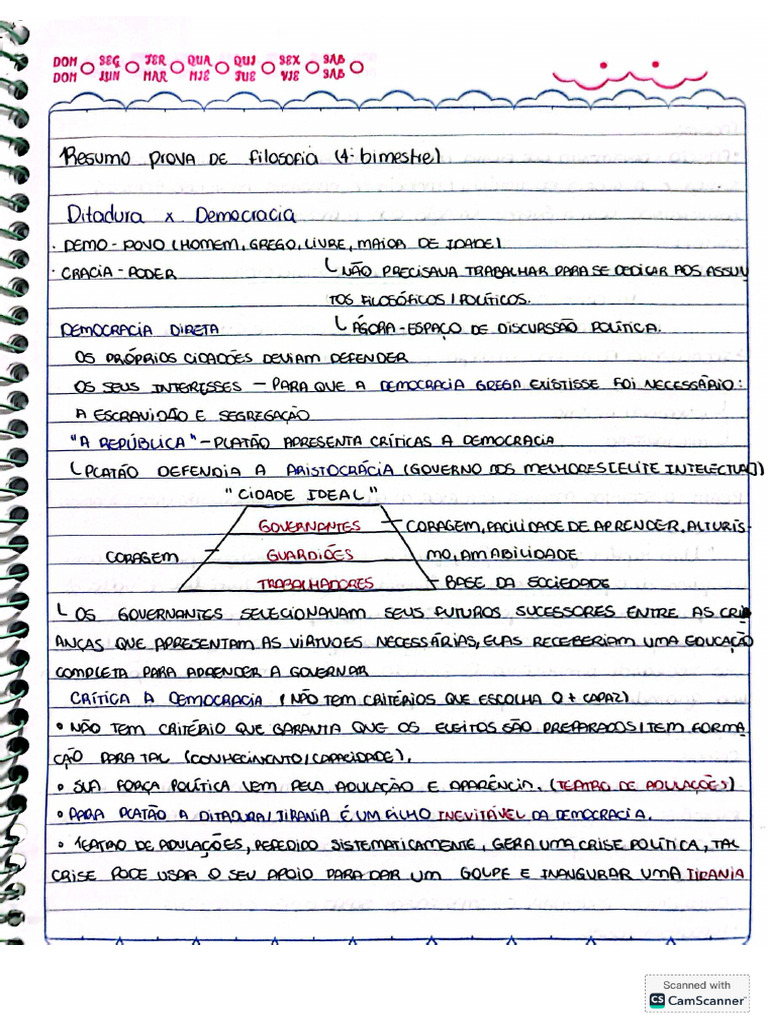 DOM SEG TER QUA QUI SEX SAB
DOM LUN MAR MIE JUE VIE SAB
Resumo prova de filosofia (4º bimestre)
Ditadura x Democracia
· DEMO - POVO (HOMEM, GREGO, LIVRE, MAIOR DE IDADE)
· CRACIA - PODER └ NÃO PRECISAVA TRABALHAR PARA SE DEDICAR AOS ASSUN
TOS FILOSÓFICOS / POLÍTICOS.
DEMOCRACIA DIRETA └ ÁGORA - ESPAÇO DE DISCUSSÃO POLÍTICA.
OS PRÓPRIOS CIDADÕES DEVIAM DEFENDER
OS SEUS INTERESSES — PARA QUE A DEMOCRACIA GREGA EXISTISSE FOI NECESSÁRIO:
A ESCRAVIDÃO E SEGREGAÇÃO
"A REPÚBLICA" - PLATÃO APRESENTA CRÍTICAS A DEMOCRACIA
└ PLATÃO DEFENDIA A ARISTOCRÁCIA (GOVERNO DOS MELHORES [ELITE INTELECTUAL])
"CIDADE IDEAL"
GOVERNANTES — CORAGEM, FACILIDADE DE APRENDER, ALTURIS-
CORAGEM — GUARDIÕES MO, AMABILIDADE
TRABALHADORES — BASE DA SOCIEDADE
└ OS GOVERNANTES SELECIONAVAM SEUS FUTUROS SUCESSORES ENTRE AS CRI
ANÇAS QUE APRESENTAM AS VIRTUDES NECESSÁRIAS, ELAS RECEBERIAM UMA EDUCAÇÃO
COMPLETA PARA APRENDER A GOVERNAR
CRÍTICA A DEMOCRACIA (NÃO TEM CRITÉRIOS QUE ESCOLHA O + CAPAZ)
• NÃO TEM CRITÉRIO QUE GARANTA QUE OS ELEITOS SÃO PREPARADOS / TEM FORMA
ÇÃO PARA TAL (CONHECIMENTO / CAPACIDADE).
• SUA FORÇA POLÍTICA VEM PELA ADULAÇÃO E APARÊNCIA. (TEATRO DE ADULAÇÕES)
• PARA PLATÃO A DITADURA / TIRANIA É UM FILHO INEVITÁVEL DA DEMOCRACIA.
• TEATRO DE ADULAÇÕES, REPEDIDO SISTEMATICAMENTE, GERA UMA CRISE POLÍTICA, TAL
CRISE PODE USAR O SEU APOIO PARA DAR UM GOLPE E INAUGURAR UMA TIRANIA
Scanned with
CS CamScanner